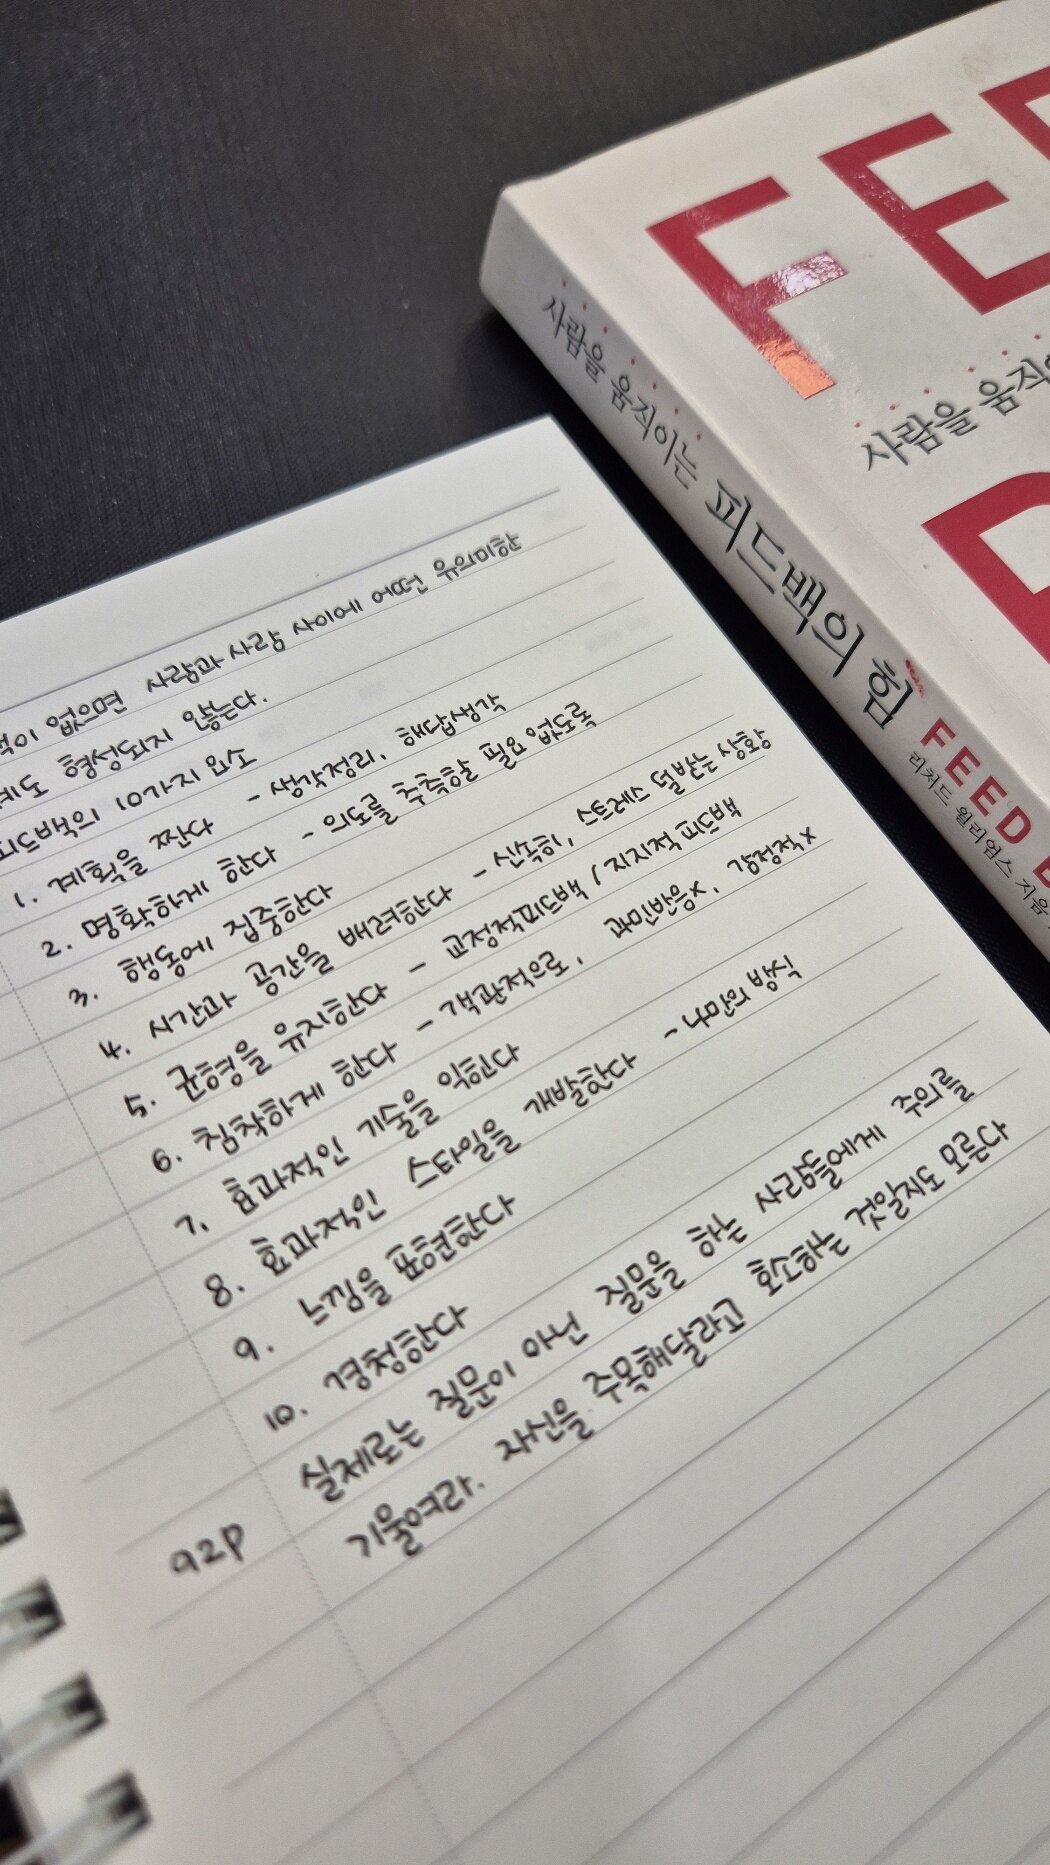 FEE
사람을 움직이
사람을 움직이는 피드백의 힘 FEED B
리처드 윌리엄스 지음
없으면 사람과 사람 사이에 어떤 유의미한
도 형성되지 않는다.
피드백의 10가지 요소
1. 계획을 짠다 - 생각정리, 해답생각
2. 명확하게 한다 - 의도를 추측할 필요 없도록
3. 행동에 집중한다
4. 시간과 공간을 배려한다 - 신속히, 스트레스 덜받는 상황
5. 균형을 유지한다 - 교정적피드백 / 지지적 피드백
6. 침착하게 한다 - 객관적으로, 과민반응x, 감정적x
7. 효과적인 기술을 익힌다
8. 효과적인 스타일을 개발한다 - 나만의 방식
9. 느낌을 표현한다
10. 경청한다
실제로는 질문이 아닌 질문을 하는 사람들에게 주의를
92P 기울여라. 자신을 주목해달라고 호소하는 것일지도 모른다